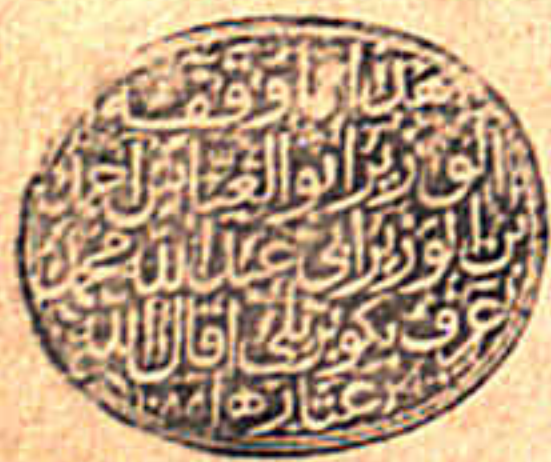 هذا ما وقفه
الوزير أبو العباس احمد
بن الوزير أبي عبد الله محمد
عرف بكوبريلي اقال الله
عثارهما ١٠٨٨